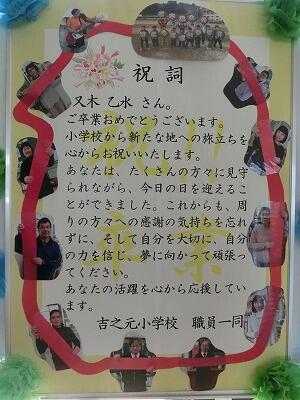 祝詞
又木 乙水 さん。
ご卒業おめでとうございます。
小学校から新たな地への旅立ちを
心からお祝いいたします。
あなたは、たくさんの方々に見守
られながら、今日の日を迎えるこ
とができました。これからも、周
りの方々への感謝の気持ちを忘れ
ずに、そして自分を大切に、自分
の力を信じ、夢に向かって頑張っ
てください。
あなたの活躍を心から応援してい
ます。
吉之元小学校 職員一同